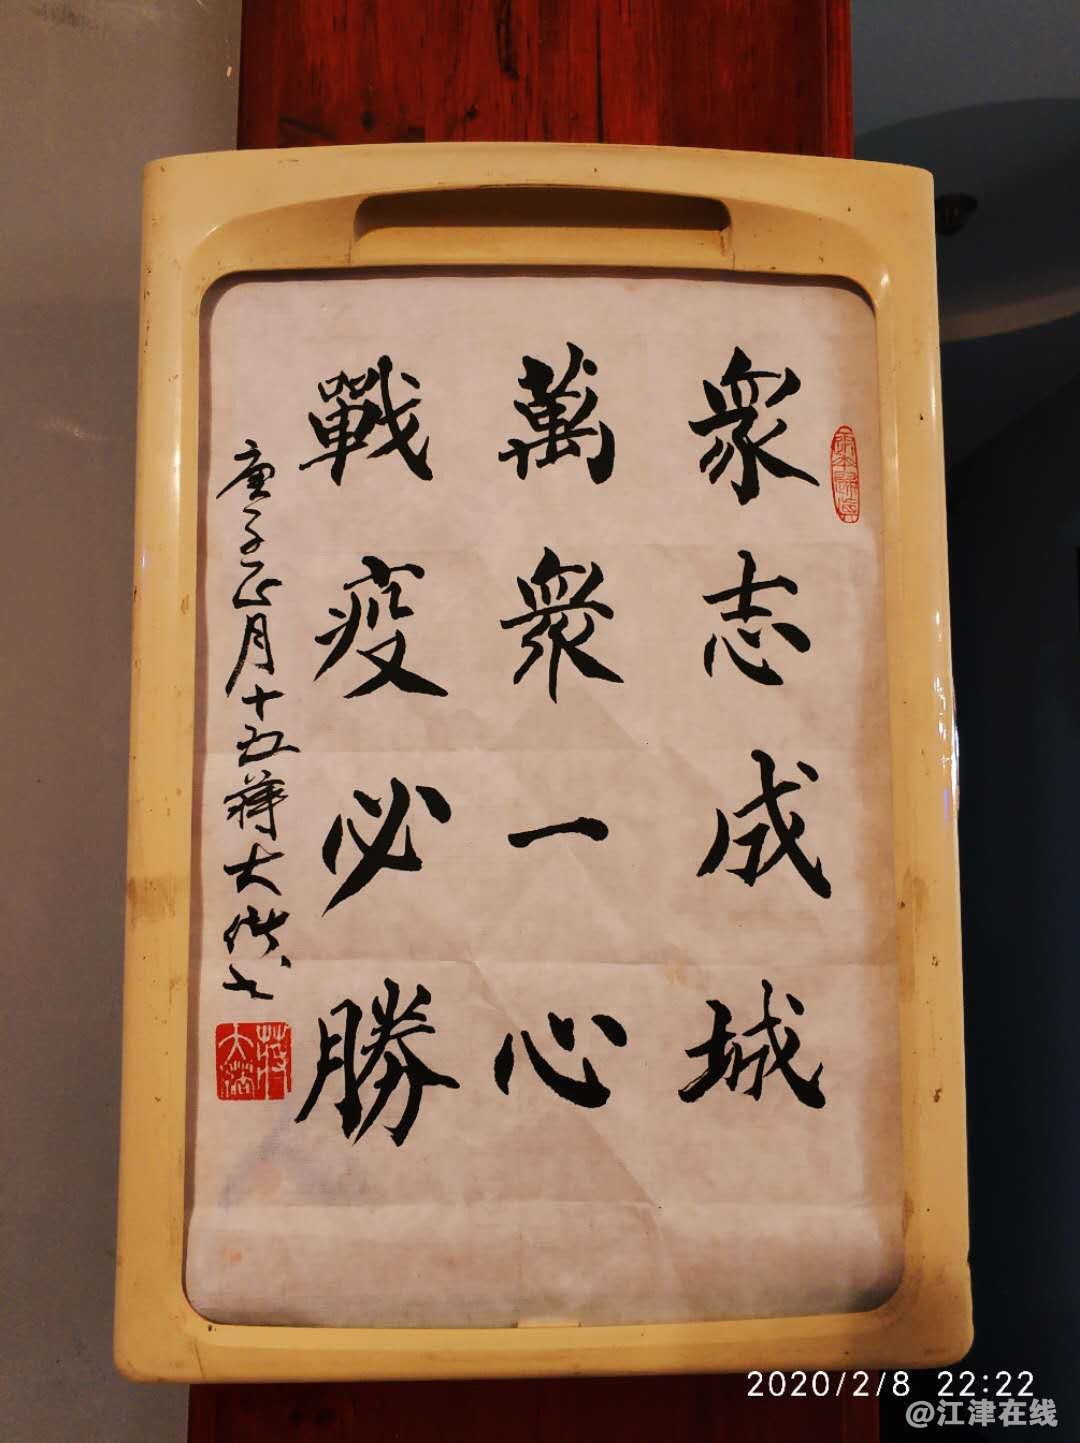 眾志成城
萬眾一心
戰疫必勝
庚子正月十五蔣大
蔣大
2020/2/8 22:22
@江津在线